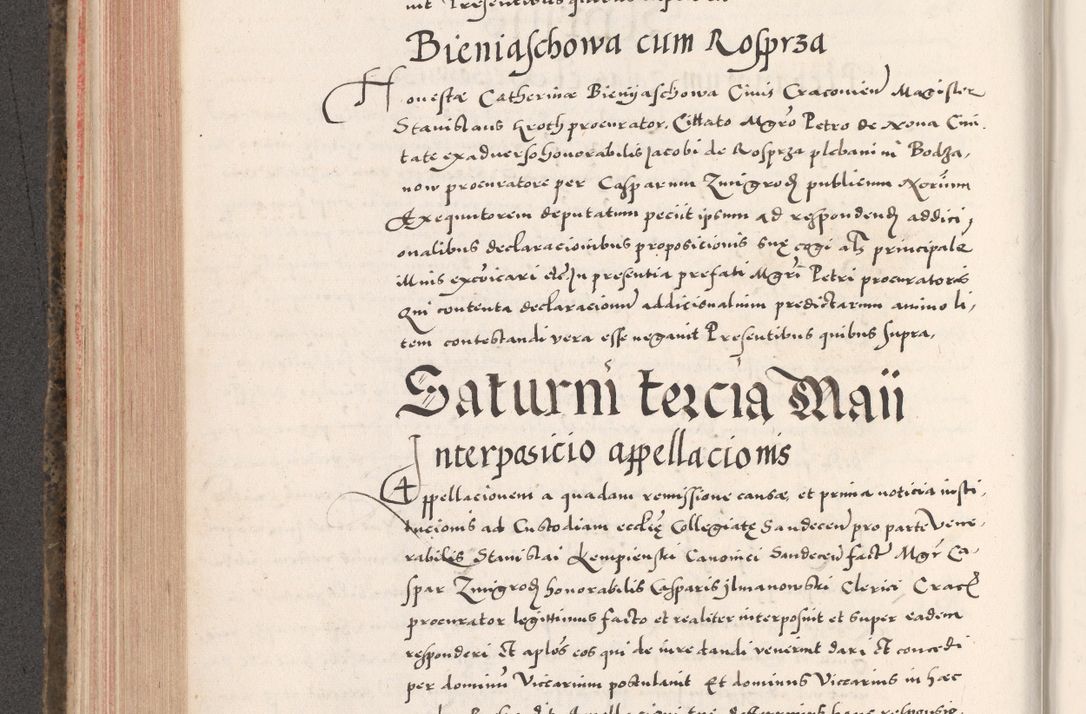 Bieniaschowa cum Rosprza
Honestæ Catherinæ Bieniaschowa Civis Cracovien Magister
Stanislaus Kroth procurator, Cittato Mgro Petro de Nova Civi,
tate ex adverso honorabilis Jacobi de Rosprza plebani in Bodza,
now procuratore per Casparum Zmigrod publicum Norium
Exequutorem deputatum peciit ipsum ad respondend addici,
onalibus declaracionibus proposicionis suę cogi als principale
illius excoicari etc In presentia prefati Mgri Petri procuratoris
Qui contenta declaracionu addicionalium predictarum animo li,
tem contestandi vera esse negavit Presentibus quibus supra,
Saturni tercia Maii
Interposicio appellacionis
Appellacionem a quadam remissione causæ, et prima noticia insti,
tucionis ad Custodiam ecclię Collegiatę Sandecen pro parte Vene,
rabilis Stanislai Kempienski Canonici Sandecen fact Mgr Ca,
spar Zmigrod honorabilis Casparis Jlmanowski Clerici Crac
procurator legittimus facto et realiter interposuit et super eadem
responderi Et aplos eos qui de iure dandi venerint dari Et concedi
per dominu Viccarium postulavit Et dominus Viccarius in hæc